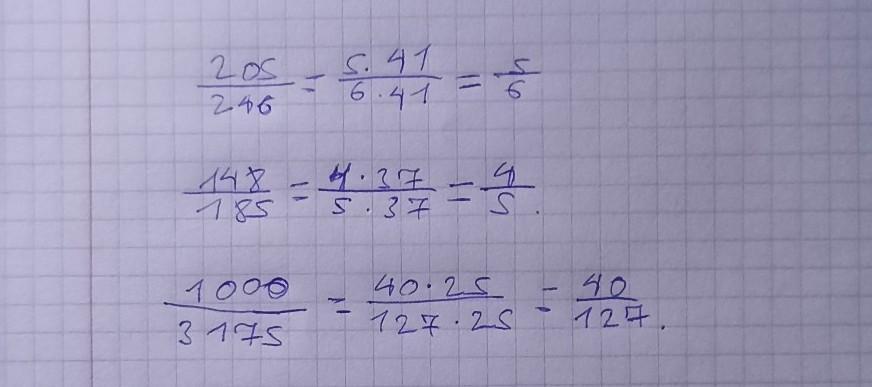 205/246 = 5·41/6·41 = 5/6
148/185 = 4·37/5·37 = 4/5.
1000/3175 = 40·25/127·25 = 40/127.